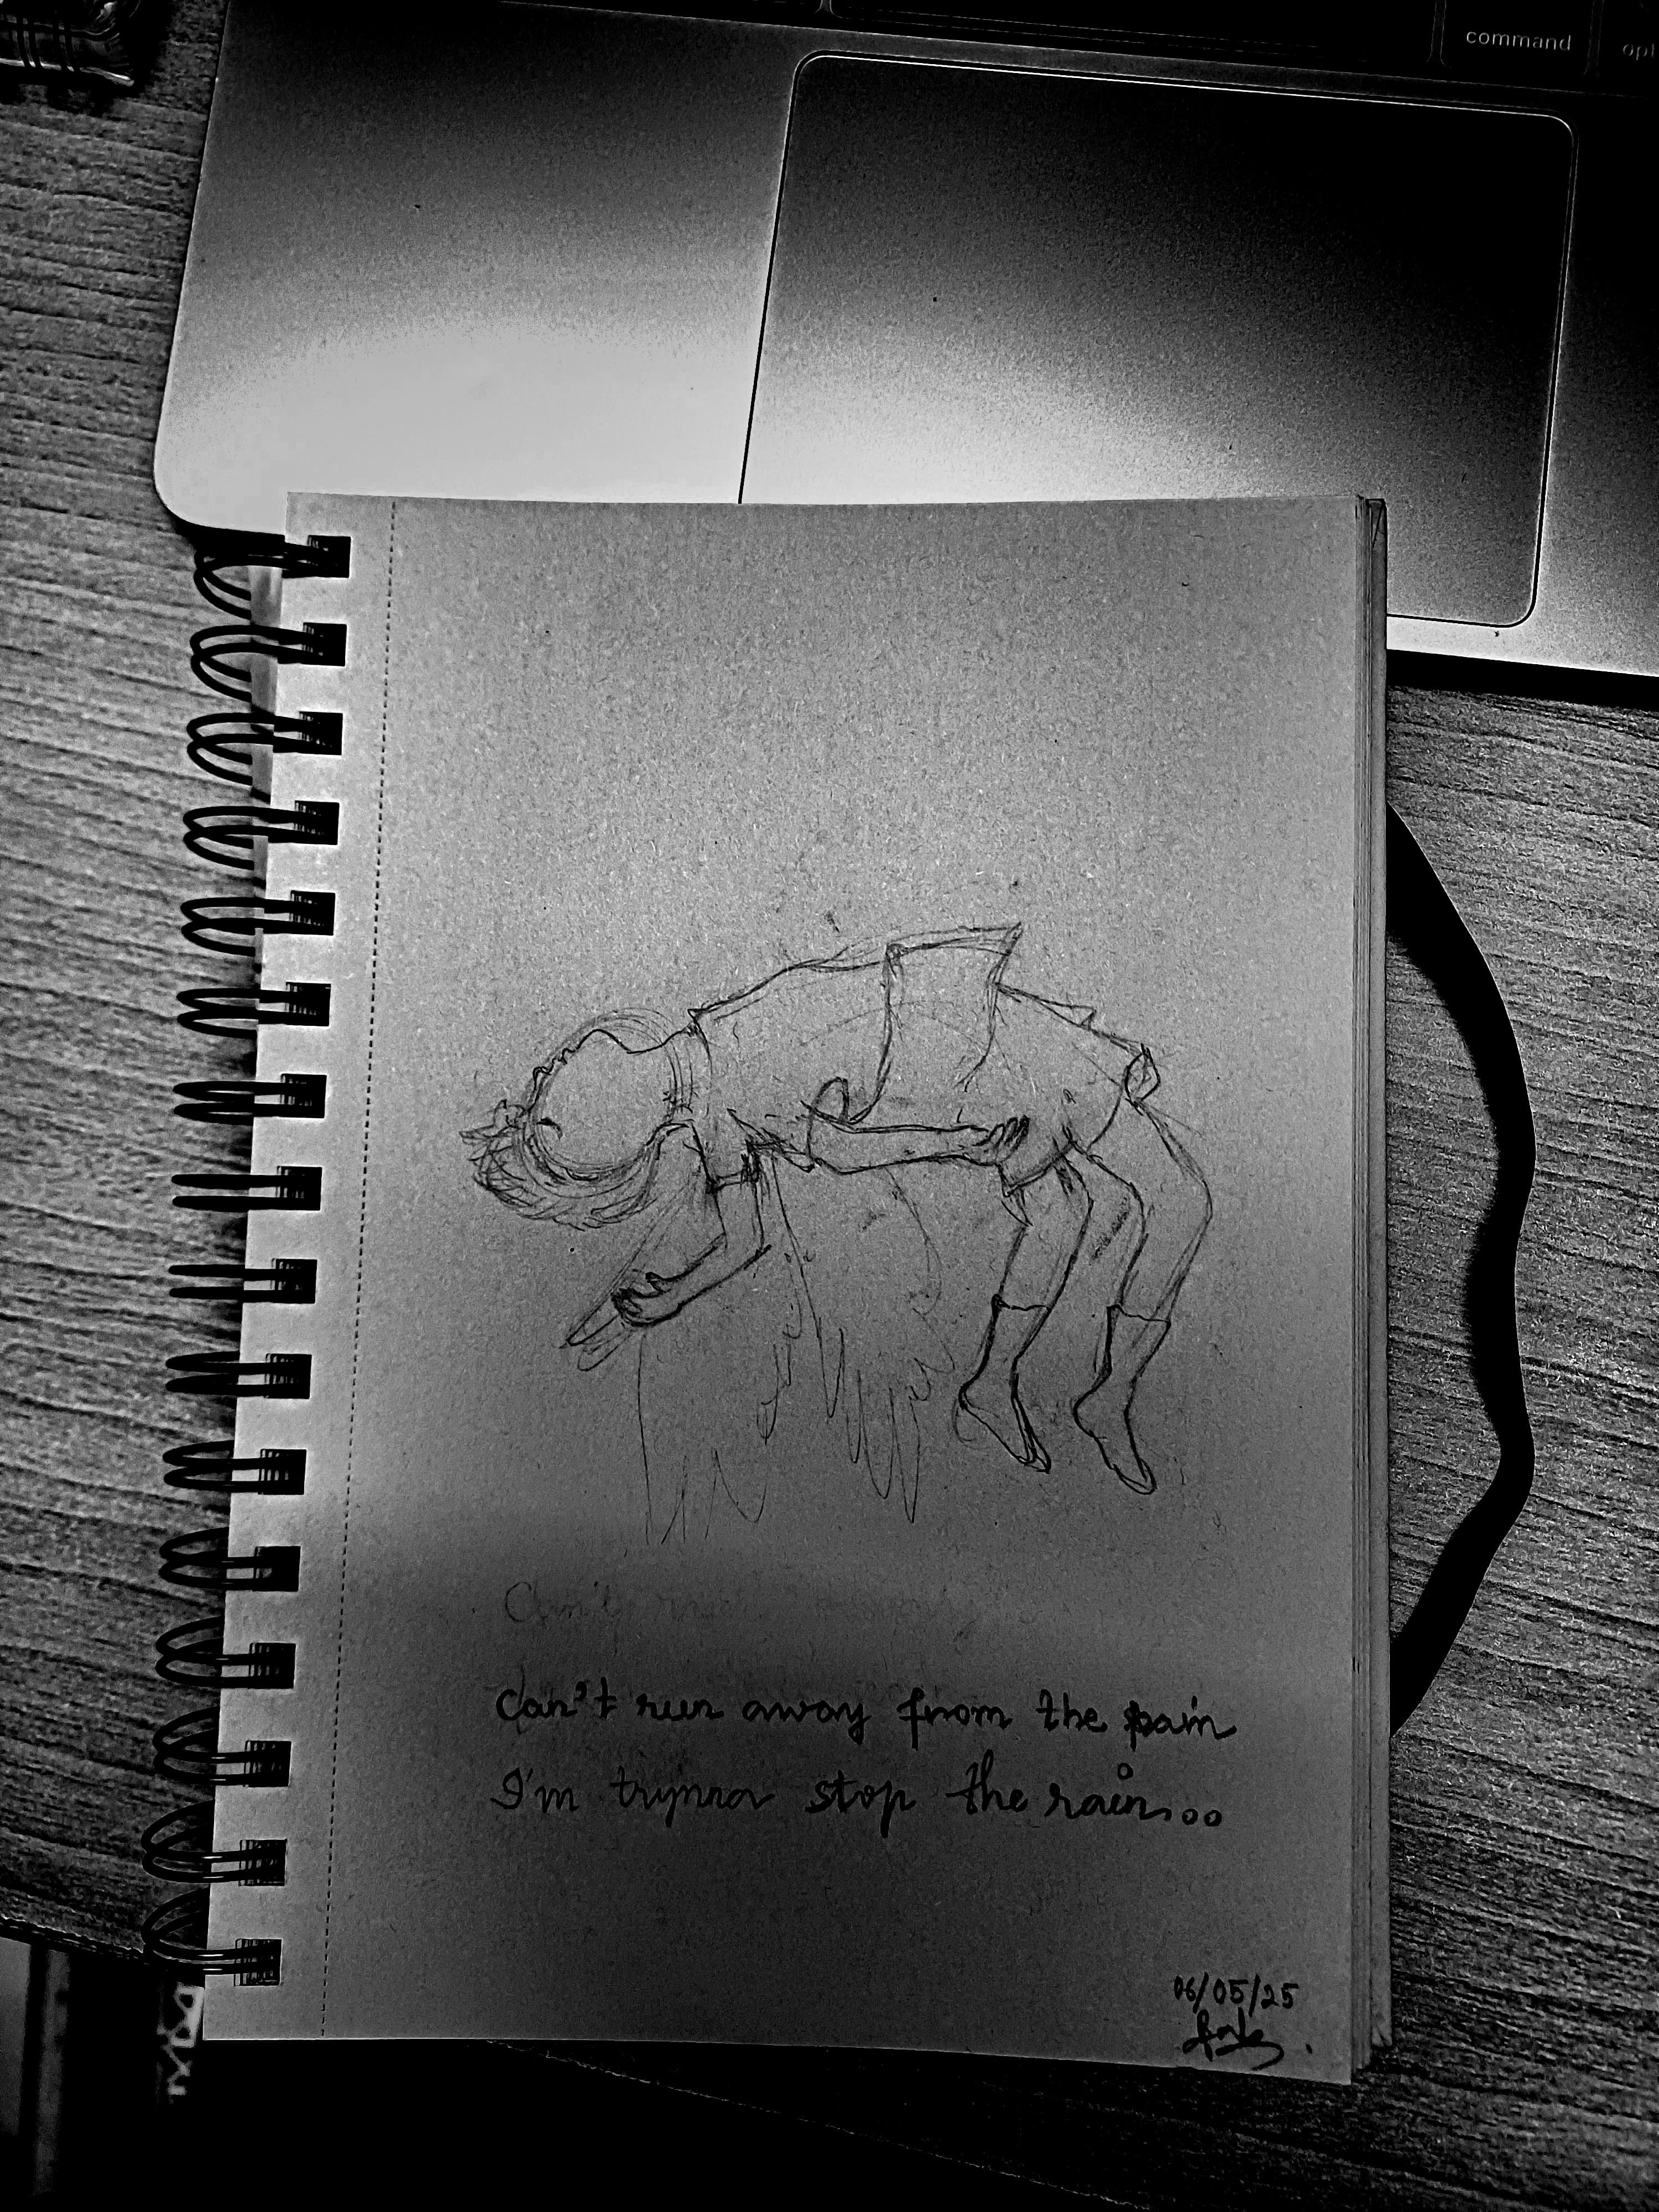 command
opt
Can't
Can't run away from the pain
I'm trynna stop the rain...
06/05/25